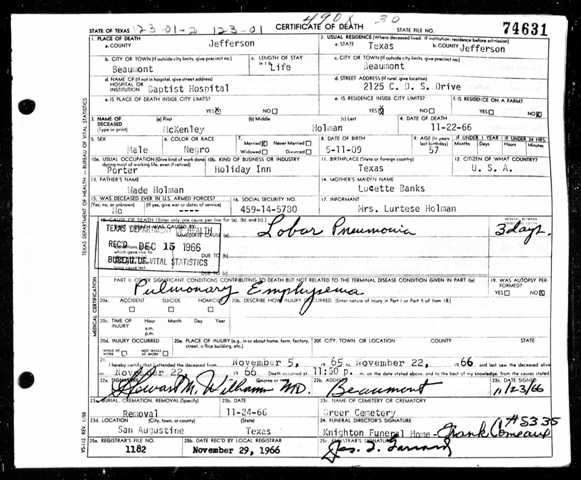 4908 30
STATE OF TEXAS 123-01-2 123-01 CERTIFICATE OF DEATH STATE FILE NO. 74631
1. PLACE OF DEATH 2. USUAL RESIDENCE (Where deceased lived. If institution: residence before admission)
a. COUNTY Jefferson a. STATE Texas b. COUNTY Jefferson
b. CITY OR TOWN (If outside city limits, give precinct no.) c. LENGTH OF STAY c. CITY OR TOWN (If outside city limits, give precinct no.)
Beaumont Life Beaumont
d. NAME OF (If not in hospital, give street address) HOSPITAL OR INSTITUTION Baptist Hospital d. STREET ADDRESS (If rural, give location) 2125 C. O. S. Drive
e. IS PLACE OF DEATH INSIDE CITY LIMITS? e. IS RESIDENCE INSIDE CITY LIMITS? f. IS RESIDENCE ON A FARM?
YES NO YES NO YES NO
3. NAME OF DECEASED (Type or print) (a) First (b) Middle (c) Last 4. DATE OF DEATH
McKenley Holman 11-22-66
5. SEX 6. RACE 7. Married Never Married Widowed Divorced 8. DATE OF BIRTH 9. AGE (In years last birthday) IF UNDER 1 YEAR Months Days IF UNDER 24 HRS. Hours Min.
Male Negro 5-11-09 57
10a. USUAL OCCUPATION (Give kind of work done during most of working life, even if retired) 10b. KIND OF BUSINESS OR INDUSTRY 11. BIRTHPLACE (State or foreign country) 12. CITIZEN OF WHAT COUNTRY?
Porter Holiday Inn Texas U. S. A.
13. FATHER'S NAME 14. MOTHER'S MAIDEN NAME
Wade Holman Lucette Banks
15. WAS DECEASED EVER IN U.S. ARMED FORCES? 16. SOCIAL SECURITY NO. 17. INFORMANT
No ---- 459-14-5780 Mrs. Lurtese Holman
18. CAUSE OF DEATH (Enter only one cause per line for (a), (b), and (c).)
TEXAS DEPARTMENT OF HEALTH
REC'D DEC 15 1966
BUREAU OF VITAL STATISTICS
Lobar Pneumonia 3 days
DUE TO (b)
DUE TO (c)
PART II. OTHER SIGNIFICANT CONDITIONS CONTRIBUTING TO DEATH BUT NOT RELATED TO THE TERMINAL DISEASE CONDITION GIVEN IN PART I(a) 19. WAS AUTOPSY PERFORMED?
Pulmonary Emphysema YES NO
20a. ACCIDENT SUICIDE HOMICIDE 20b. DESCRIBE HOW INJURY OCCURRED. (Enter nature of injury in Part I or Part II of item 18.)
20c. TIME OF INJURY Hour Month Day Year
a.m.
p.m.
20d. INJURY OCCURRED 20e. PLACE OF INJURY (e.g., in or about home, farm, factory, street, office building, etc.) 20f. CITY, TOWN, OR LOCATION COUNTY STATE
WHILE AT WORK NOT WHILE AT WORK
21. I hereby certify that I attended the deceased from November 5, 65 November 22, 66 and last saw the deceased alive
November 22, 66 Death occurred at 11:50 p. m. on the date stated above, and to the best of my knowledge, from the causes stated
22a. SIGNATURE Stewart M. Williams MD. Beaumont 22c. DATE SIGNED 11/23/66
23a. BURIAL, CREMATION, REMOVAL (Specify) 23b. DATE 23c. NAME OF CEMETERY OR CREMATORY
Removal 11-24-66 Greer Cemetery
23d. LOCATION (City, town, or county) (State) 24. FUNERAL DIRECTOR'S SIGNATURE #5335
San Augustine Texas Knighton Funeral Home - Frank Comeaux
25a. REGISTRAR'S FILE NO. 25b. DATE REC'D BY LOCAL REGISTRAR 25c. REGISTRAR'S SIGNATURE
1182 November 29, 1966
TEXAS DEPARTMENT OF HEALTH — BUREAU OF VITAL STATISTICS
MEDICAL CERTIFICATION